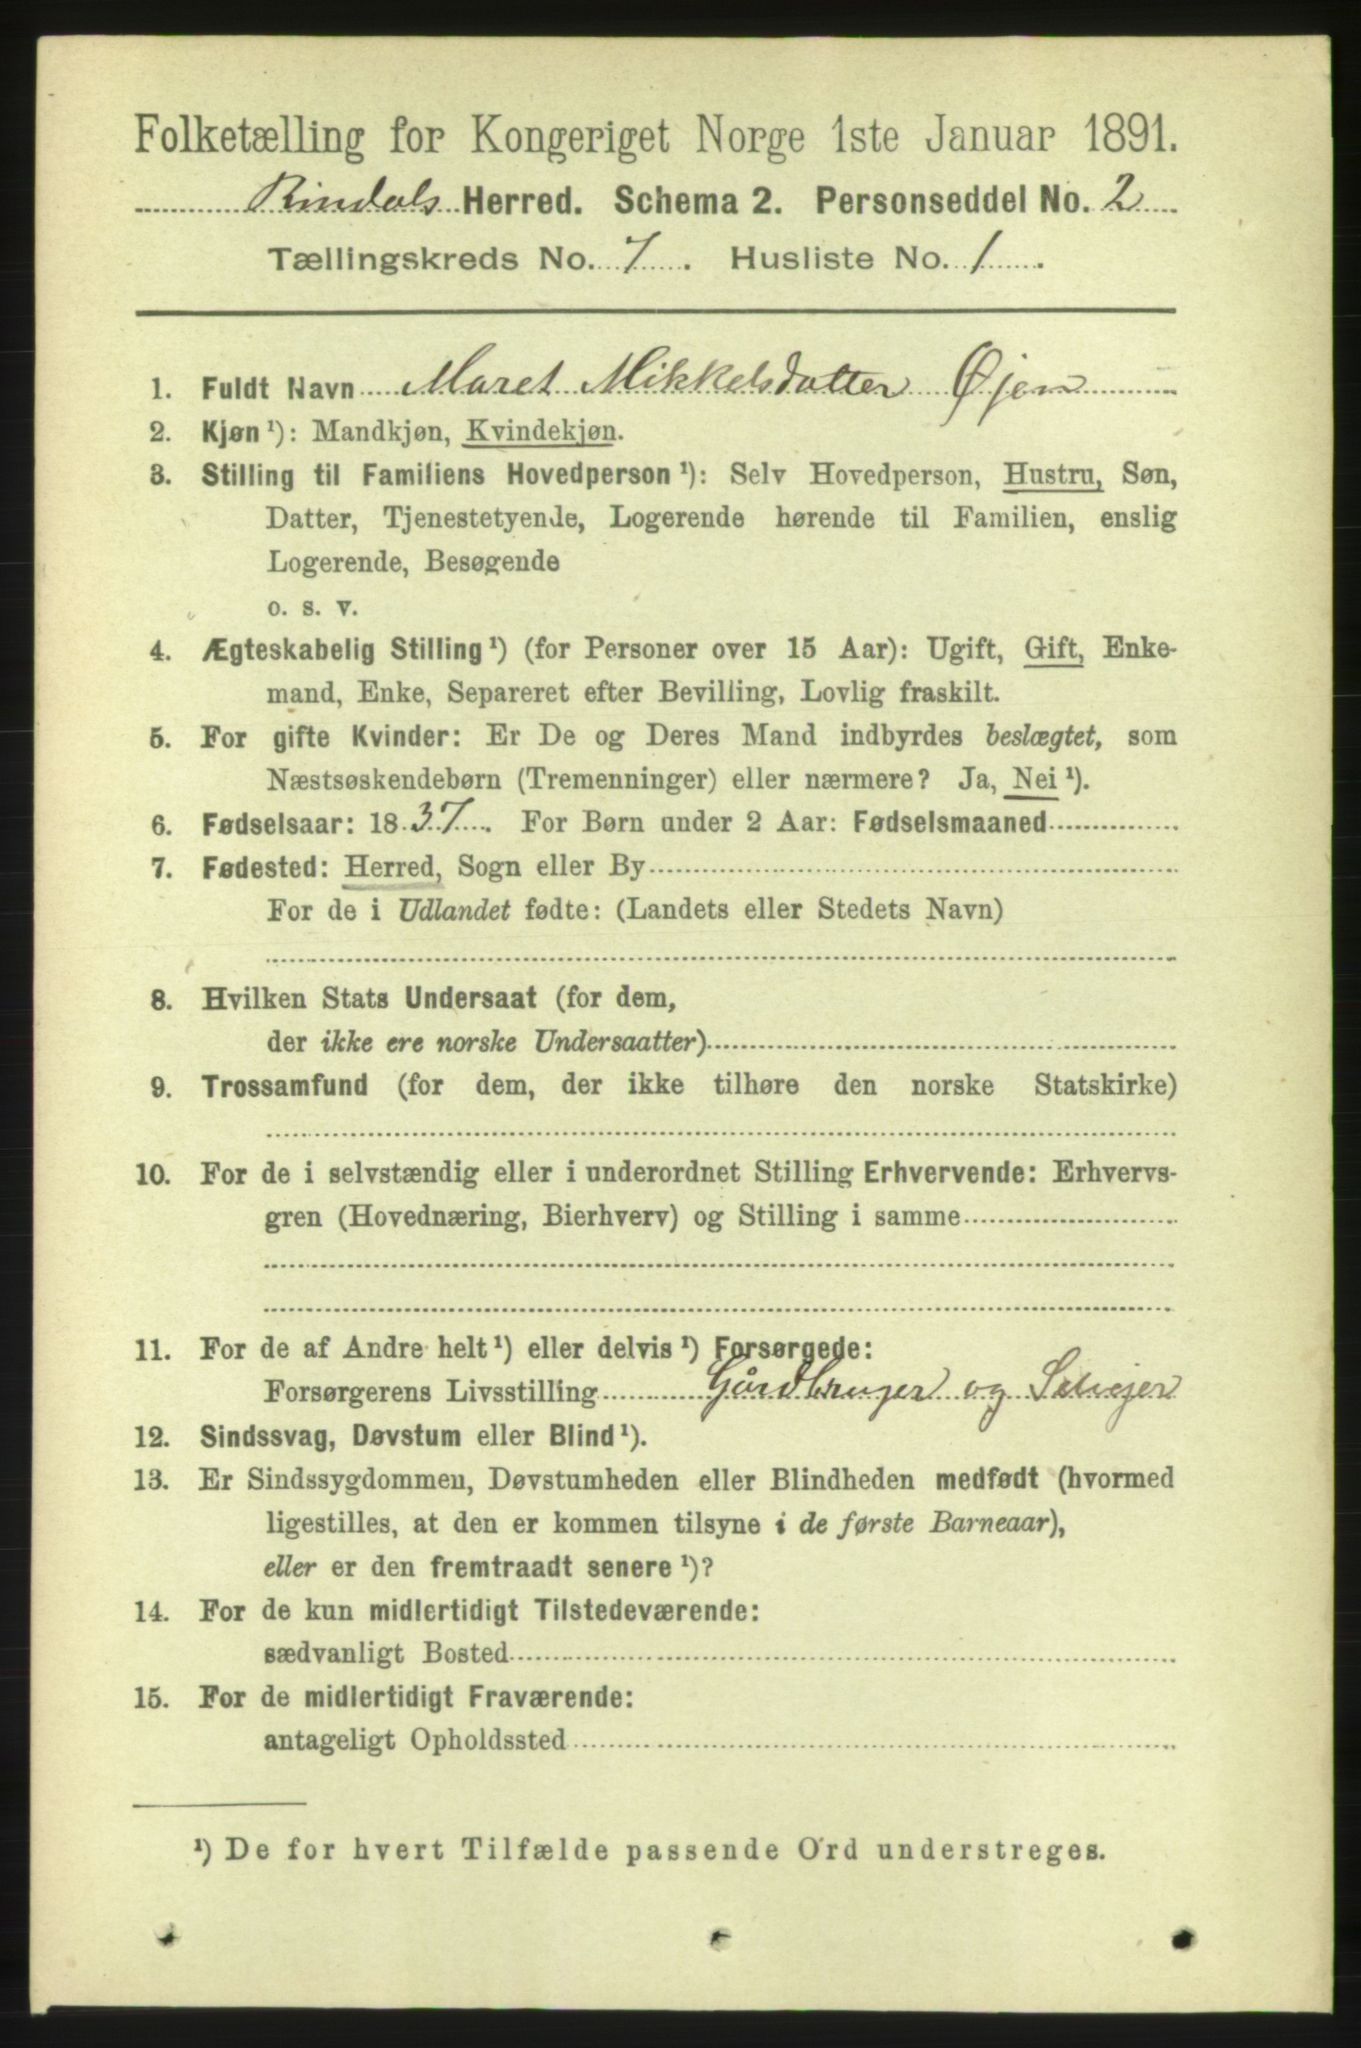 Folketælling for Kongeriget Norge 1ste Januar 1891.
Rindals Herred. Schema 2. Personseddel No. 2
Tællingskreds No. 7. Husliste No. 1.
1. Fuldt Navn Maret Mikkelsdatter Øjen
2. Kjøn ¹): Mandkjøn, Kvindekjøn.
3. Stilling til Familiens Hovedperson ¹): Selv Hovedperson, Hustru, Søn,
Datter, Tjenestetyende, Logerende hørende til Familien, enslig
Logerende, Besøgende
o. s. v.
4. Ægteskabelig Stilling ¹) (for Personer over 15 Aar): Ugift, Gift, Enke-
mand, Enke, Separeret efter Bevilling, Lovlig fraskilt.
5. For gifte Kvinder: Er De og Deres Mand indbyrdes beslægtet, som
Næstsøskendebørn (Tremenninger) eller nærmere? Ja, Nei ¹).
6. Fødselsaar: 1837. For Børn under 2 Aar: Fødselsmaaned
7. Fødested: Herred, Sogn eller By
For de i Udlandet fødte: (Landets eller Stedets Navn)
8. Hvilken Stats Undersaat (for dem,
der ikke ere norske Undersaatter)
9. Trossamfund (for dem, der ikke tilhøre den norske Statskirke)
10. For de i selvstændig eller i underordnet Stilling Erhvervende: Erhvervs-
gren (Hovednæring, Bierhverv) og Stilling i samme
11. For de af Andre helt ¹) eller delvis ¹) Forsørgede:
Forsørgerens Livsstilling Gårdbruger og Selvejer
12. Sindssvag, Døvstum eller Blind ¹).
13. Er Sindssygdommen, Døvstumheden eller Blindheden medfødt (hvormed
ligestilles, at den er kommen tilsyne i de første Barneaar),
eller er den fremtraadt senere ¹)?
14. For de kun midlertidigt Tilstedeværende:
sædvanligt Bosted
15. For de midlertidigt Fraværende:
antageligt Opholdssted
¹) De for hvert Tilfælde passende Ord understreges.